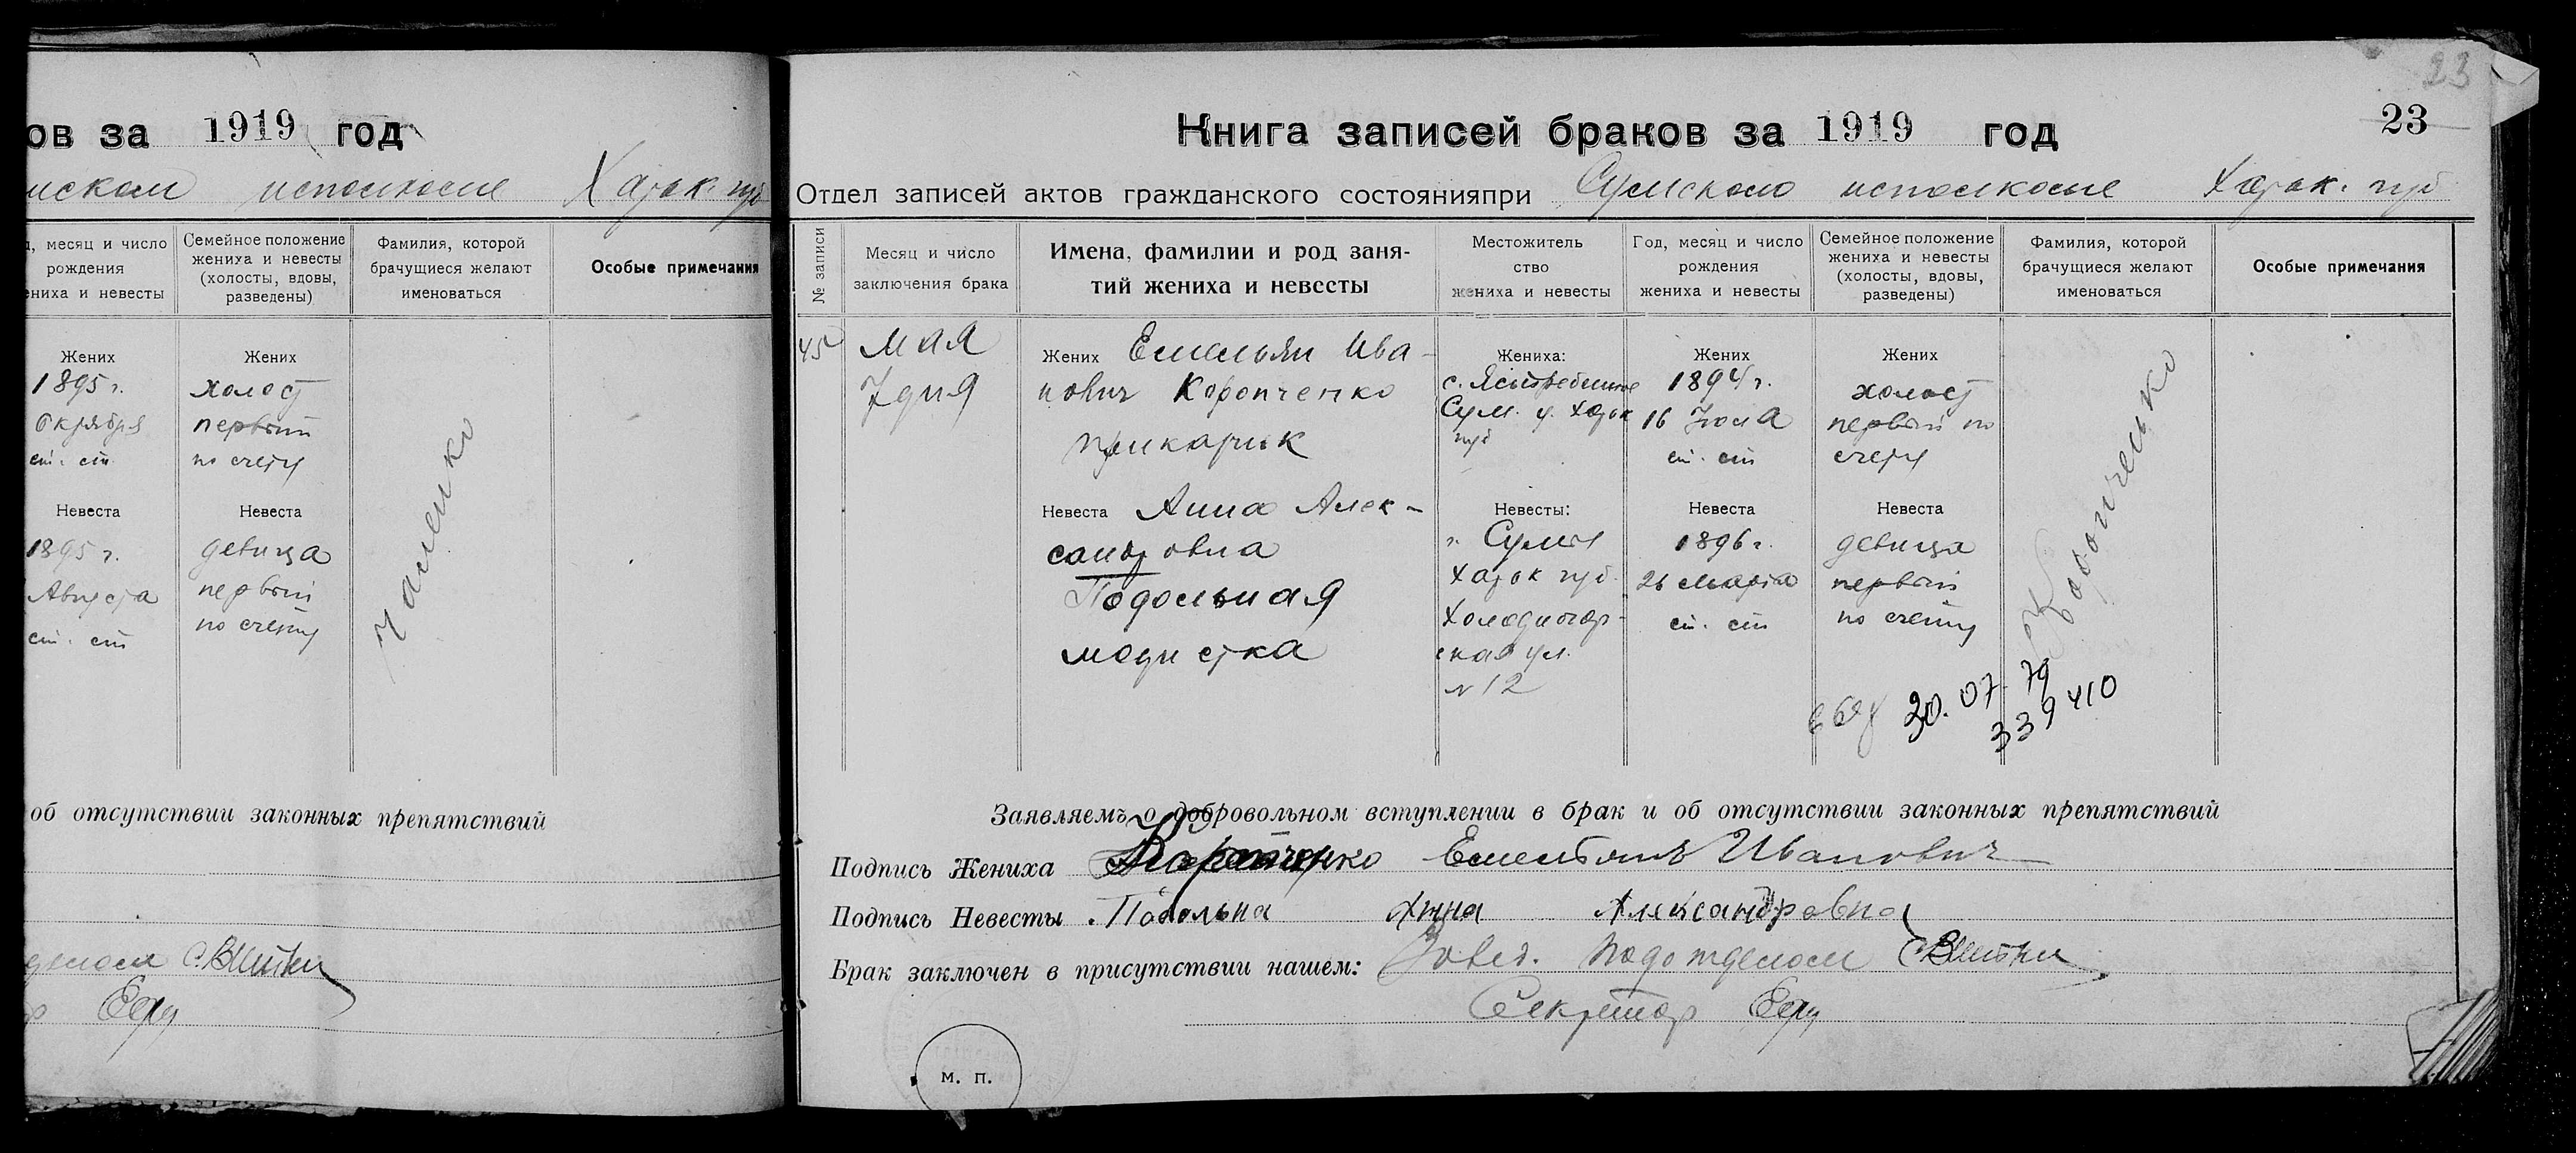 ов за 1919 год
исполкоме Харьк. губ
месяц и число
рождения
жениха и невесты
Семейное положение
жениха и невесты
(холосты, вдовы,
разведены)
Фамилия, которой
брачущиеся желают
именоваться
Особые примечания
Жених
1895 г.
ст. ст
Жених
холост
первый
по счету
Невеста
1895 г.
Августа
ст. ст
Невеста
девица
первый
по счету
об отсутствии законных препятствий
23
Книга записей браков за 1919 год
23
Отдел записей актов гражданского состоянияпри Сумском исполкоме Харьк. губ
№ записи
Месяц и число
заключения брака
Имена, фамилии и род заня-
тий жениха и невесты
Местожитель
ство
жениха и невесты
Год, месяц и число
рождения
жениха и невесты
Семейное положение
жениха и невесты
(холосты, вдовы,
разведены)
Фамилия, которой
брачущиеся желают
именоваться
Особые примечания
45
мая
7 дня
Жених Емельян Ива-
нович Коропченко
Невеста Анна Алек-
сандровна
Подольная
модистка
Жениха:
с. Ястребиное
Сум. у. Харьк
губ
Невесты:
г. Сумы
Харьк губ.
Холодногор-
ская ул.
№ 12
Жених
1894 г.
16
ст. ст
Невеста
1896 г.
26 Марта
ст. ст
Жених
холост
первый по
счету
Невеста
девица
первый
по счету
Коропченко
20. 07. 79
339410
Заявляемъ о добровольном вступлении в брак и об отсутствии законных препятствий
Подпись Жениха Коропченко Емельянъ Иванович
Подпись Невесты Подольна Анна Александровна
Брак заключен в присутствии нашем: Завед. подотделом
Секретарь
м. п.